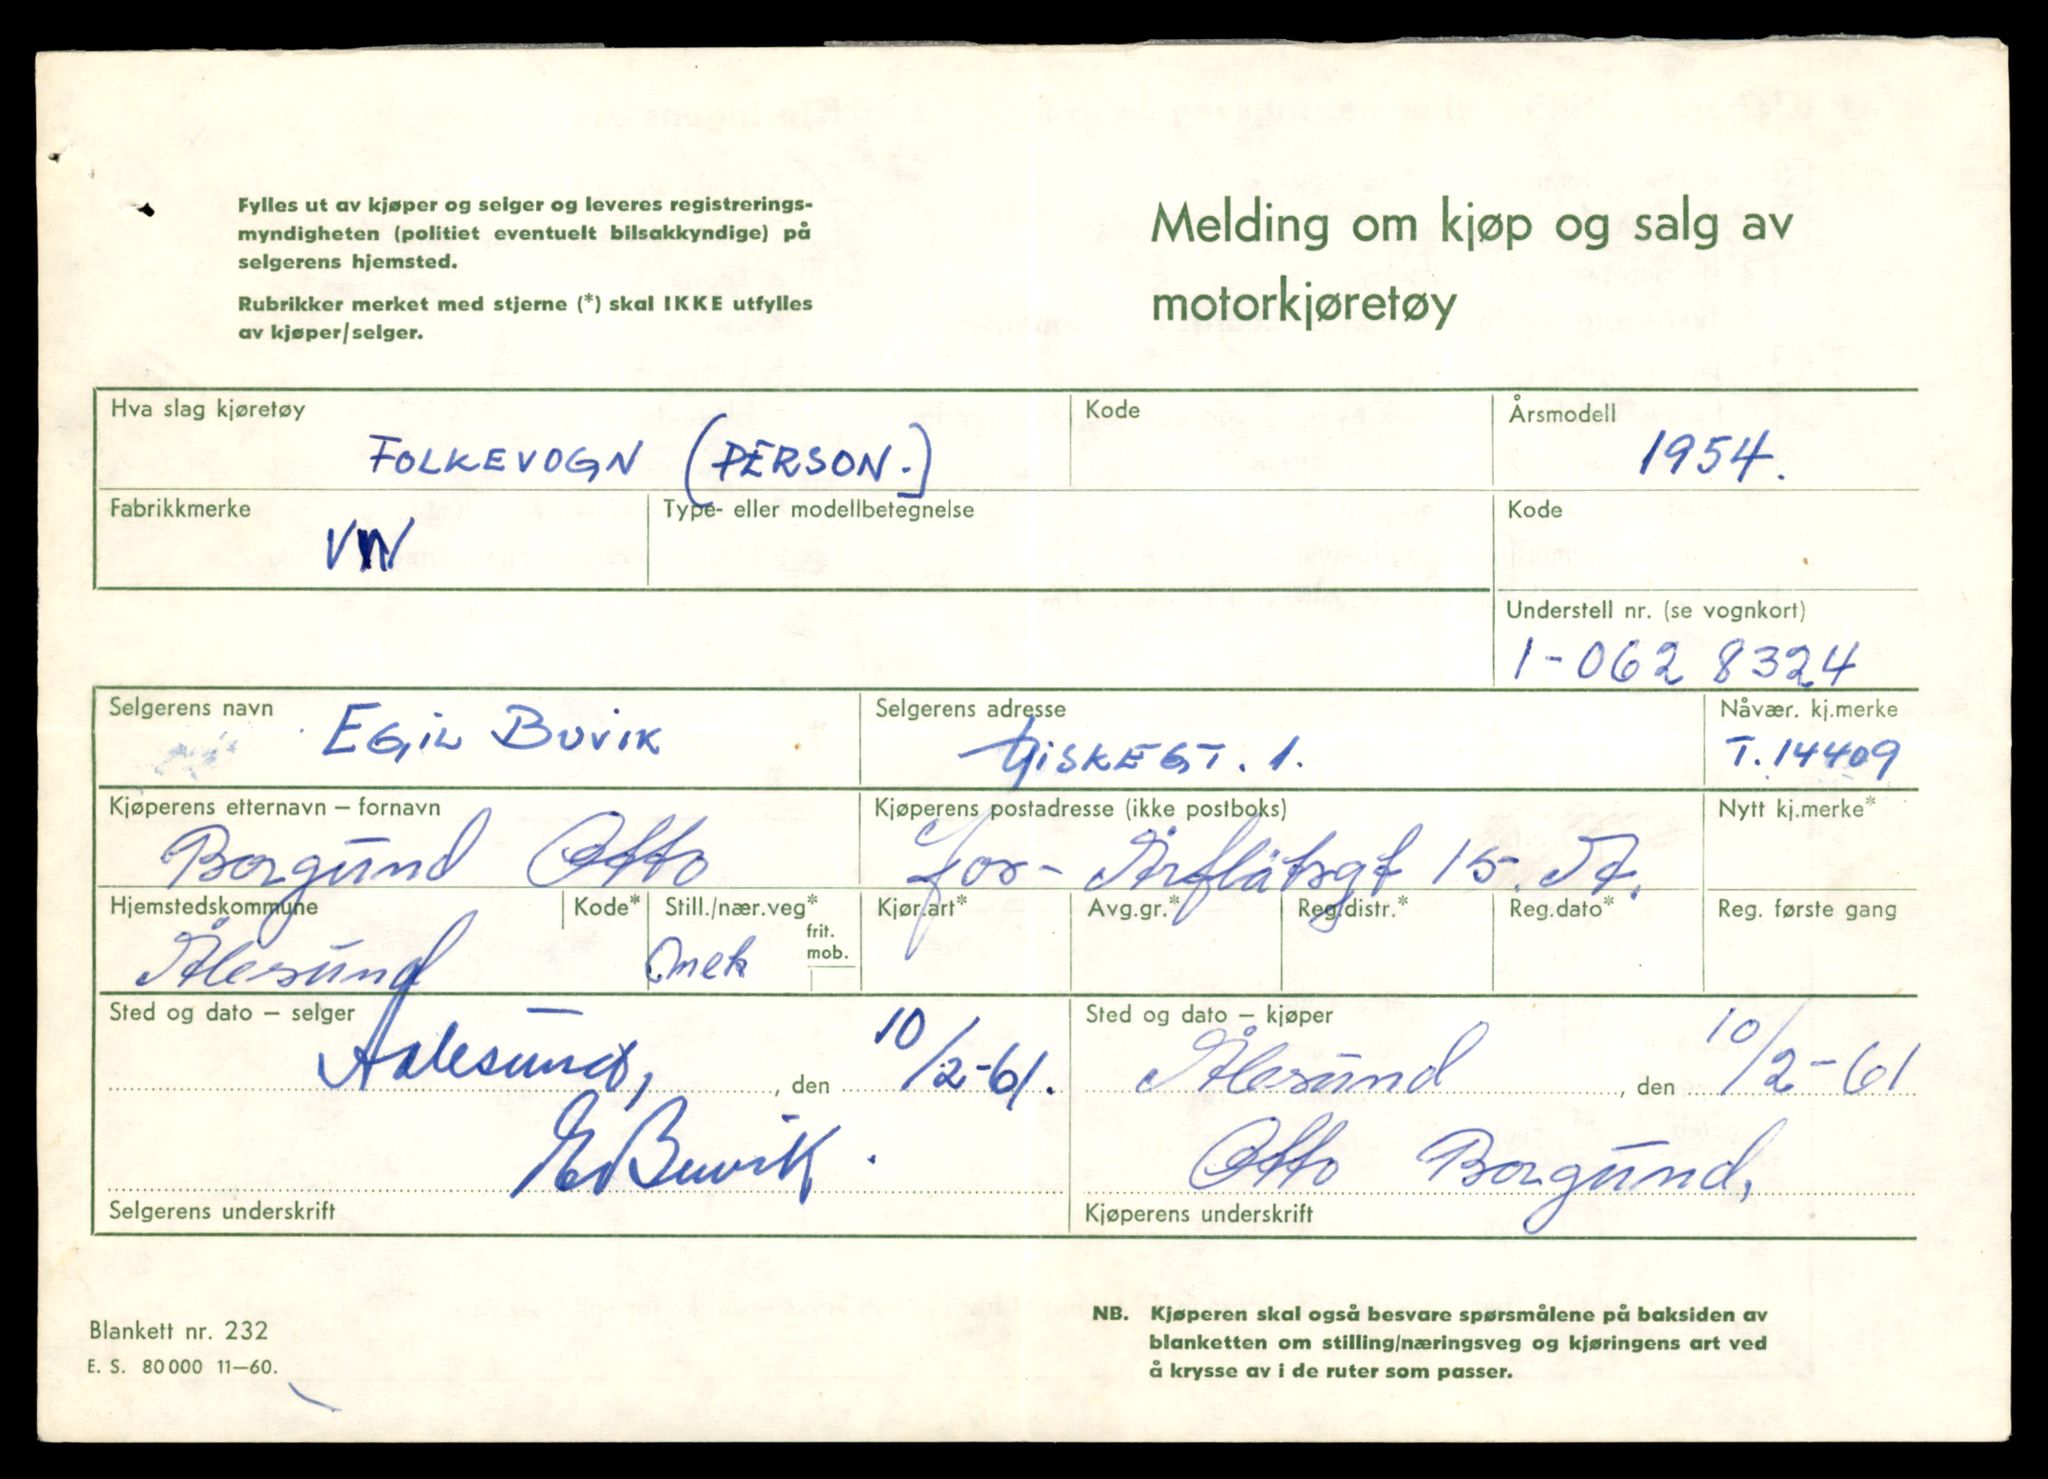 Fylles ut av kjøper og selger og leveres registrerings-
myndigheten (politiet eventuelt bilsakkyndige) på
selgerens hjemsted.
Rubrikker merket med stjerne (*) skal IKKE utfylles
av kjøper/selger.
Melding om kjøp og salg av
motorkjøretøy
Hva slag kjøretøy
FOLKEVOGN (PERSON.)
Kode
Årsmodell
1954.
Fabrikkmerke
VW
Type- eller modellbetegnelse
Kode
Understell nr. (se vognkort)
1-062 8324
Selgerens navn
EGIL BUVIK
Selgerens adresse
GISKEGT. 1.
Nåvær. kj.merke
T.14409
Kjøperens etternavn – fornavn
Borgund Otto
Kjøperens postadresse (ikke postboks)
15. Å.
Nytt kj.merke*
Hjemstedskommune
Ålesund
Kode*
Still./nær.veg*
mek
frit.
mob.
Kjør.art*
Avg.gr.*
Reg.distr.*
Reg.dato*
Reg. første gang
Sted og dato – selger
Aalesund, den 10/2-61.
E. Buvik.
Selgerens underskrift
Sted og dato – kjøper
Ålesund den 10/2-61
Otto Borgund,
Kjøperens underskrift
Blankett nr. 232
E. S. 80000 11–60.
NB. Kjøperen skal også besvare spørsmålene på baksiden av
blanketten om stilling/næringsveg og kjøringens art ved
å krysse av i de ruter som passer.